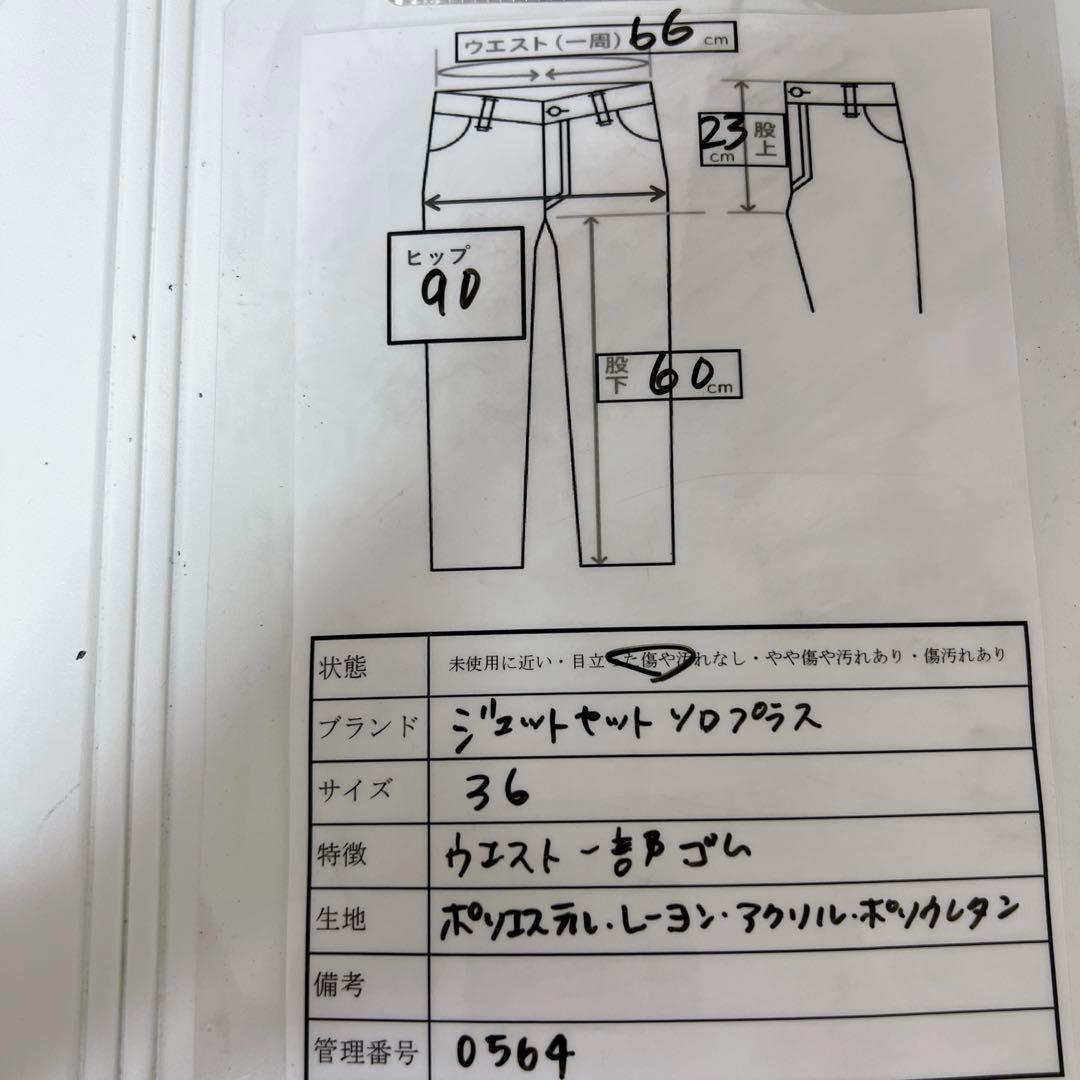 ウエスト(一周) 66 cm
23 cm 股上
ヒップ
90
股下 60 cm
状態 未使用に近い・目立った傷や汚れなし・やや傷や汚れあり・傷汚れあり
ブランド ジェットセット ソロプラス
サイズ 36
特徴 ウエスト一部ゴム
生地 ポリエステル・レーヨン・アクリル・ポリウレタン
備考
管理番号 0564